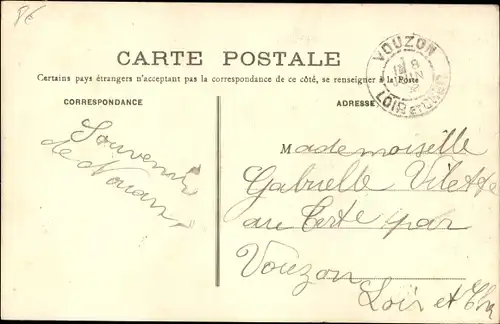 86
CARTE POSTALE
Certains pays étrangers n'acceptant pas la correspondance de ce côté, se renseigner à la Poste
CORRESPONDANCE
ADRESSE
VOUZON
18
JUIN
LOIR-ET-CHER
Souvenir
de Nouan
Mademoiselle
Gabrielle Vilette
au Certe par
Vouzon
Loir et Cher